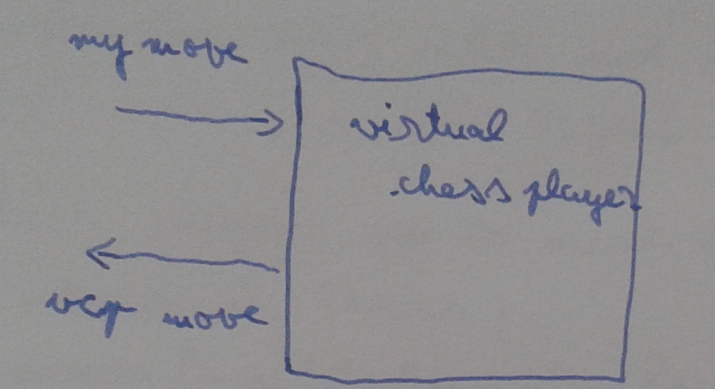 my move
virtual
chess player
vcp move